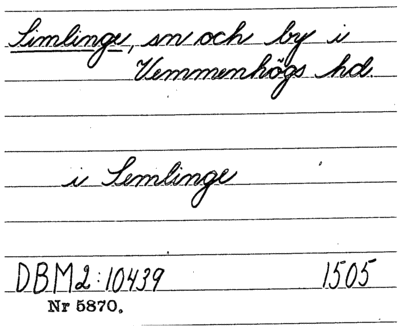 Simlinge, sn och by i
Vemmenhögs hd.
i Semlinge
DBM2:10439 1505
Nr 5870.